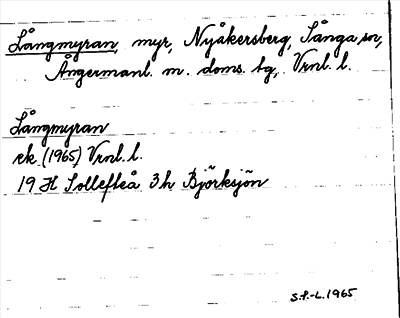 Långmyran, myr, Nyåkersberg, Sånga sn,
Ångermanl. m. doms. tg, Vrnl. l.
Långmyran
ek. (1965) Vrnl. l.
19 H Sollefteå 3h Björksjön
S.P.-L. 1965